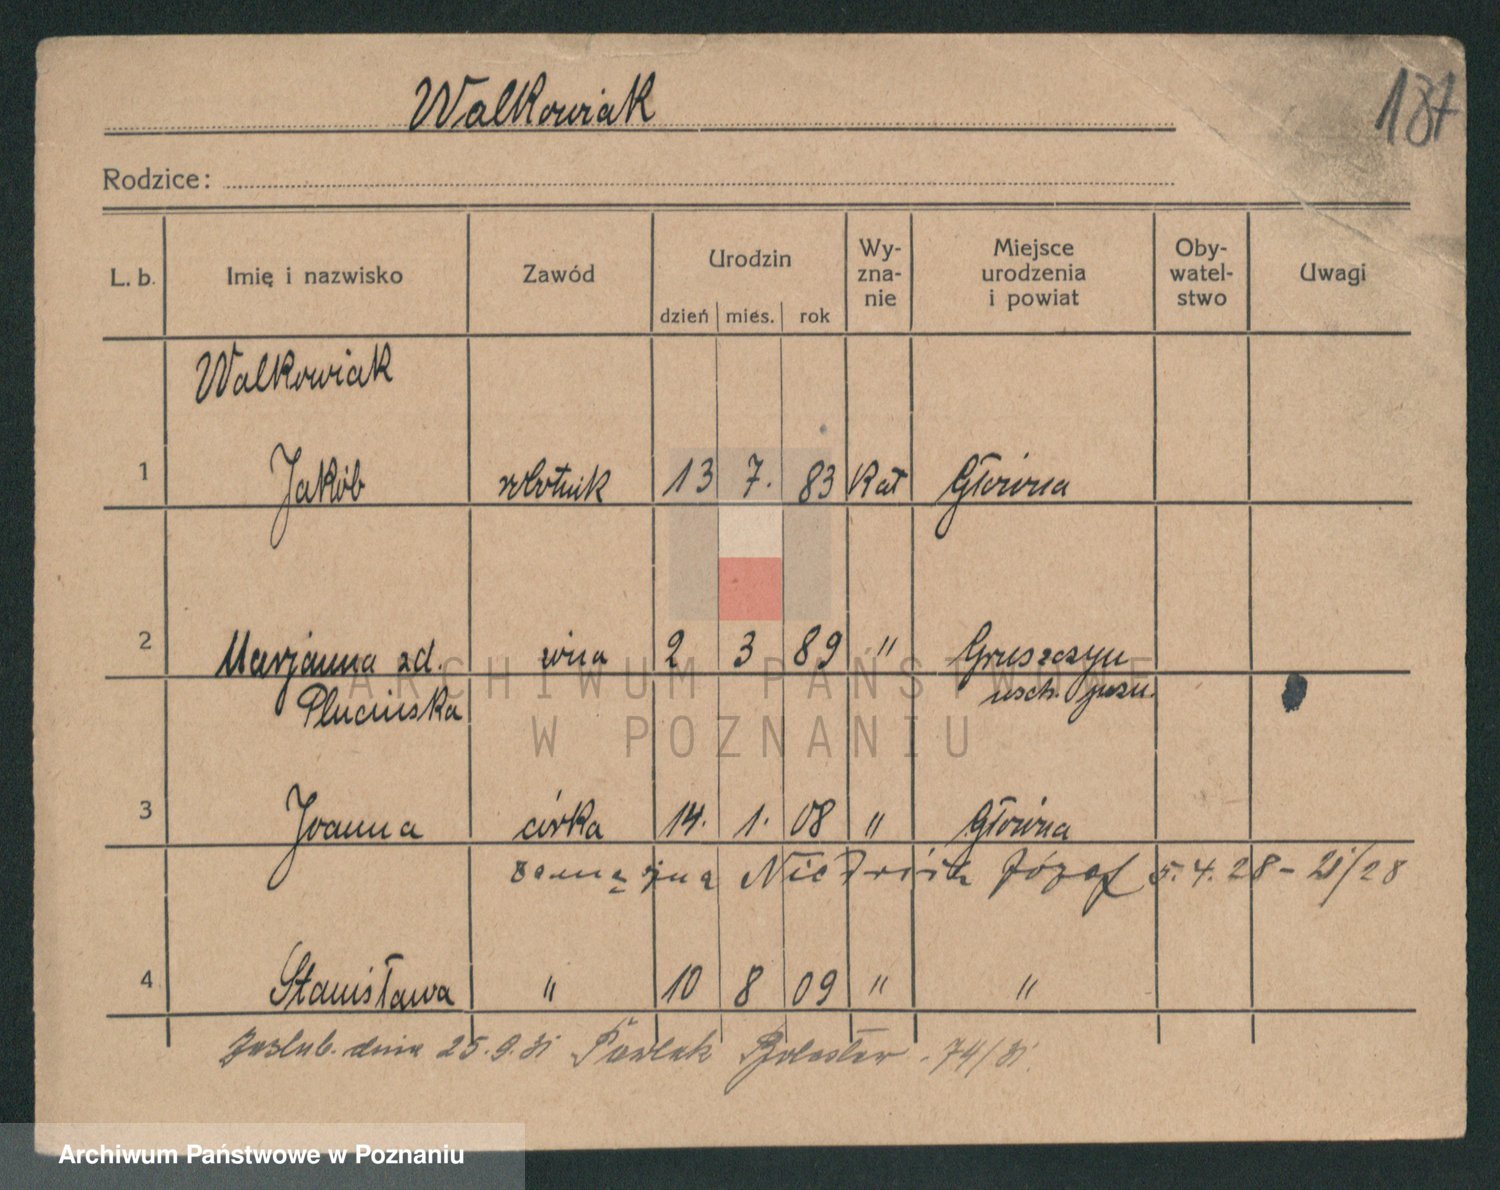 Walkowiak
187
Rodzice:
L. b. Imię i nazwisko Zawód Urodzin dzień mies. rok Wy-zna-nie Miejsce urodzenia i powiat Oby-watel-stwo Uwagi
Walkowiak
1 Jakób 13 7. 83 Kat Główna
2 Marjanna zd. żona 2 3 89 " Gruszczyn
Plucińska wsch. pozn.
3 Joanna córka 14. 1. 08 " Główna
zamężna Józef 5.4.28 - 21/28
4 Stanisława " 10 8 09 " "
Zaślub. dnia 25.9.31 Pawlak Bolesław - 74/31.
ARCHIWUM PAŃSTWOWE
W POZNANIU
Archiwum Państwowe w Poznaniu